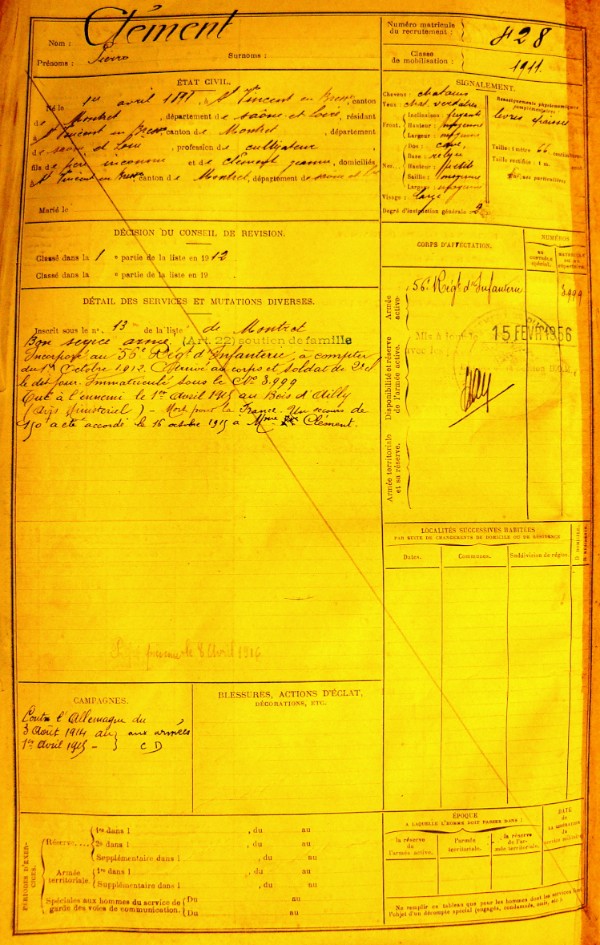 Nom : Clément
Prénoms : Pierre Surnoms :
Numéro matricule
du recrutement : 428
Classe
de mobilisation : 1911
ÉTAT CIVIL.
Né le 1er avril à St Vincent en Bresse, canton
de Montret, département de Saône et Loire, résidant
à St Vincent en Bresse, canton de Montret, département
de Saône et Loire, profession de cultivateur
fils de père inconnu et de Clément Jeanne, domiciliés
à St Vincent en Bresse, canton de Montret, département de Saône et Loire
Marié le
SIGNALEMENT.
Cheveux : chatains
Yeux : chat. verdatres
Front. Inclinaison : fuyante
Hauteur : moyenne
Largeur : moyenne
Nez. Dos : cave
Base :
Hauteur : petite
Saillie : moyenne
Largeur : moyenne
Visage : large
Renseignements physionomiques
complémentaires :
levres épaisses
Taille : 1 mètre 66 centimètres.
Taille rectifiée : 1 m.
Marques particulières
Degré d'instruction générale : 2
DÉCISION DU CONSEIL DE RÉVISION.
Classé dans la 1 e partie de la liste en 1912
Classé dans la e partie de la liste en 19
DÉTAIL DES SERVICES ET MUTATIONS DIVERSES.
Inscrit sous le n° 13 de la liste de Montret
Bon service armé (Art. 22) soutien de famille
Incorporé au 56e Régt d'Infanterie à compter
du octobre 1912. Arrivé au corps et soldat de 2e cl
le dit jour. Immatriculé sous le No 3.999
Tué à l'ennemi le 1er Avril 1915 au Bois d'Ailly
(Avis Ministériel) - Mort pour la France. Un secours de
150f a été accordé le 16 octobre 1915 à Mme Clément.
le 8 Avril 1916
CORPS D'AFFECTATION.
NUMÉROS
Armée
active.
56e Régt d'Infanterie
3.999
Disponibilité et réserve
de l'armée active.
15 FEVR 1956
Armée territoriale
et sa réserve.
LOCALITÉS SUCCESSIVES HABITÉES
PAR SUITE DE CHANGEMENTS DE DOMICILE OU DE RÉSIDENCE
Dates. Communes. Subdivision de région.
CAMPAGNES.
Contre l'Allemagne du
3 Août 1914 au aux armées
1er Avril 1915 - CD
BLESSURES, ACTIONS D'ÉCLAT,
DÉCORATIONS, ETC.
PÉRIODES D'EXERCICES.
Réserve.... 1re dans l , du au
2e dans l , du au
Supplémentaire dans l , du au
Armée
territoriale. 1re dans l , du au
Supplémentaire dans l , du au
Spéciales aux hommes du service de
garde des voies de communication. Du au
Du au
ÉPOQUE
A LAQUELLE L'HOMME DOIT PASSER DANS :
la réserve
de l'armée active.
l'armée
territoriale.
la réserve
de l'armée territoriale.
DATE
DE LA LIBÉRATION
DU SERVICE MILITAIRE
Ne remplir ce tableau que pour les hommes dont les services
l'objet d'un décompte spécial (engagés, condamnés, omis, etc.)